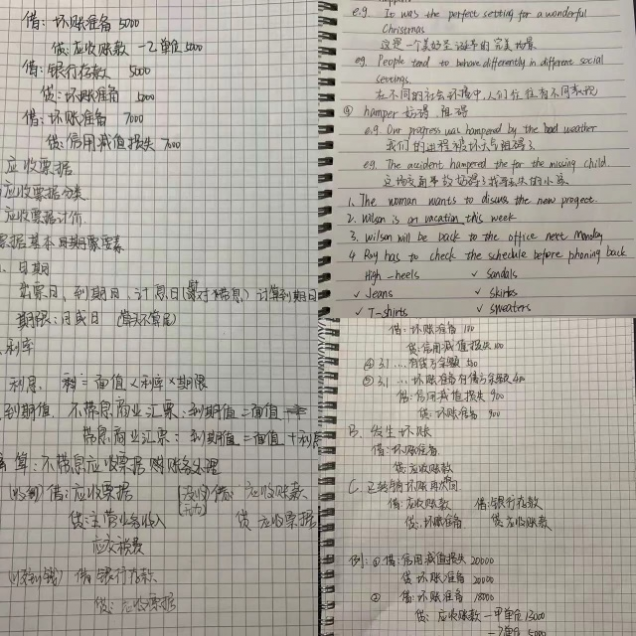 借：坏账准备 5000
贷：应收账款－乙单位 5000
借：银行存款 5000
贷：坏账准备 5000
借：坏账准备 7000
贷：信用减值损失 7000
应收票据
应收票据分类
应收票据计价
票据基本
日期
出票日，到期日，计息日 计算到期日
期限：月或日 (算头不算尾)
利率
利息 = 面值×利率×期限
到期值 不带息商业汇票：到期值＝面值
带息商业汇票：到期值＝面值＋利息
算：不带息应收票据 账务处理
(收到)借：应收票据 借：应收账款
贷：主营业务收入 贷：应收票据
应交税费
借：银行存款
贷：应收票据
e.g. It was the perfect setting for a wonderful
Christmas
这是一个美好圣诞节的完美场景
eg. People tend to behave differently in different social
settings
在不同的社会环境中，人们往往有不同表现
④ hamper 妨碍 阻碍
e.g. Our progress was hampered by the bad weather
我们的进程被坏天气阻碍了
eg. The accident hampered the for the missing child
1. The woman wants to discuss the new progect.
2. Wilson is on vacation this week
3. Wilson will be back to the office next Monday
4 Ray has to check the schedule before phoning back
High-heels ✓ Sandals
✓ Jeans ✓ Skirts
✓ T-shirts ✓ Sweaters
借：坏账准备 100
贷：信用减值损失 100
借：信用减值损失 900
贷：坏账准备 900
B. 发生坏账
借：坏账准备
贷：应收账款
C. 已转销坏账再收回
借：应收账款 借：银行存款
贷：坏账准备 贷：应收账款
例：①借：信用减值损失 20000
贷：坏账准备 20000
② 借：坏账准备 18000
贷：应收账款－甲单位 13000
－乙单位 5000